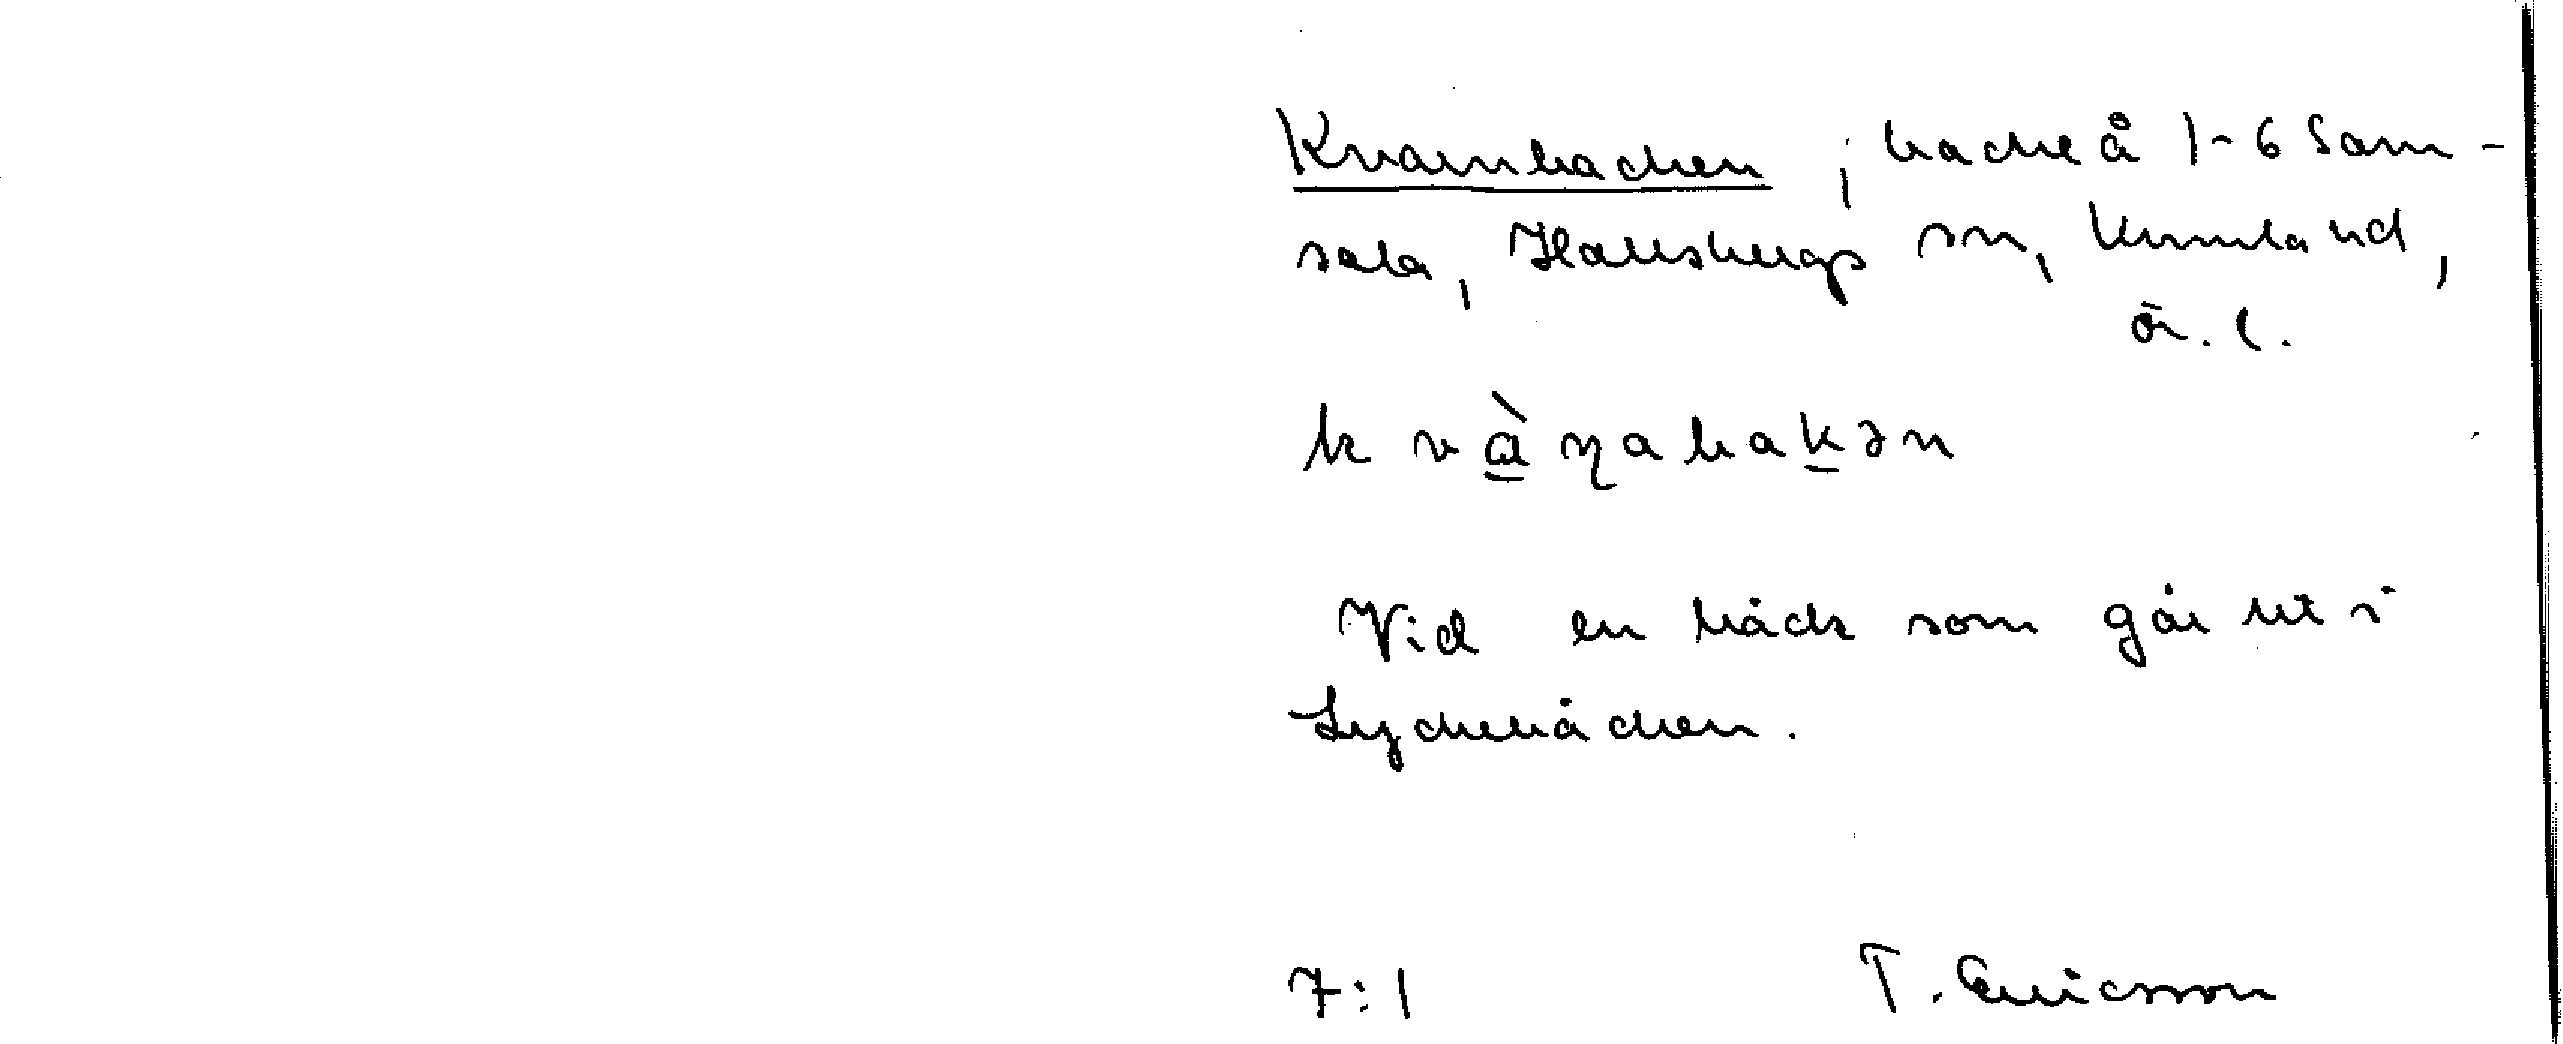 Kvarnbacken, backe å 1-6 Sam-
sala, Hallsbergs sn, Kumla hd,
ö. l.
k v à̱ ŋ a b a ḵ ə n
Vid en bäck som går ut i
Lyckebäcken.
7:1 T. Ericsson